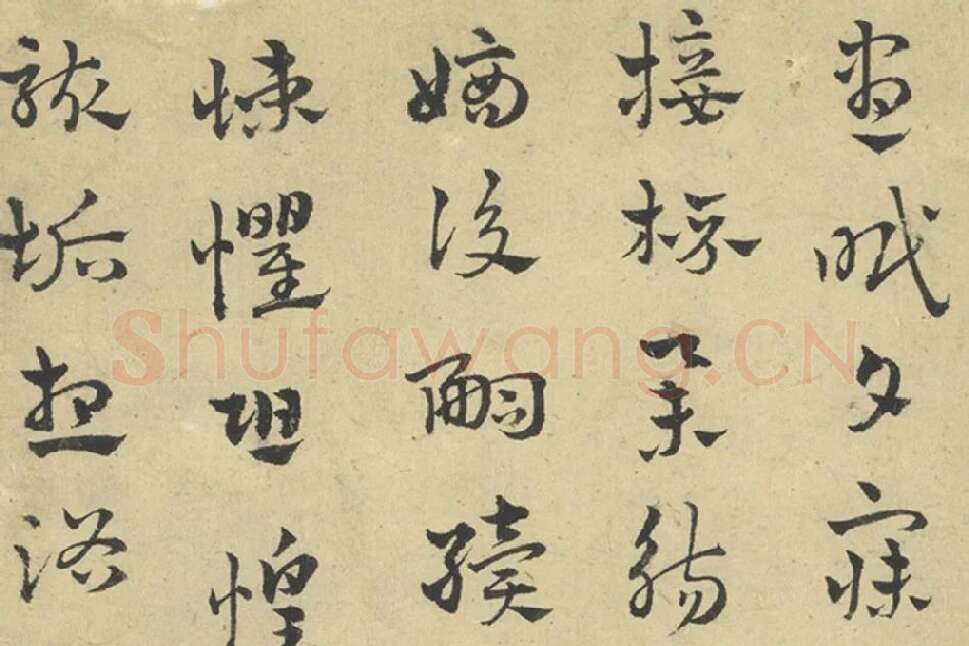 晝眠夕寐
接杯舉觴
嫡後嗣續
悚懼恐惶
骸垢想浴
Shufawang.CN